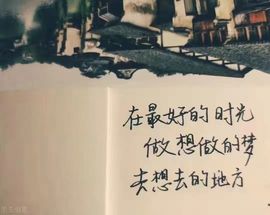 在最好的时光
做想做的梦
去想去的地方